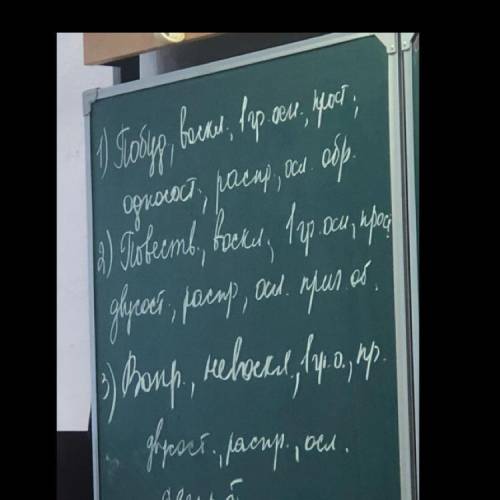 1) Побуд., воскл., 1 гр. осн., прост.,
односост., распр., осл. обр.
2) Повеств., воскл., 1 гр. осн., прост
двусост., распр., осл. прич. об.
3) Вопр., невоскл., 1 гр. о., пр.
двусост., распр., осл.